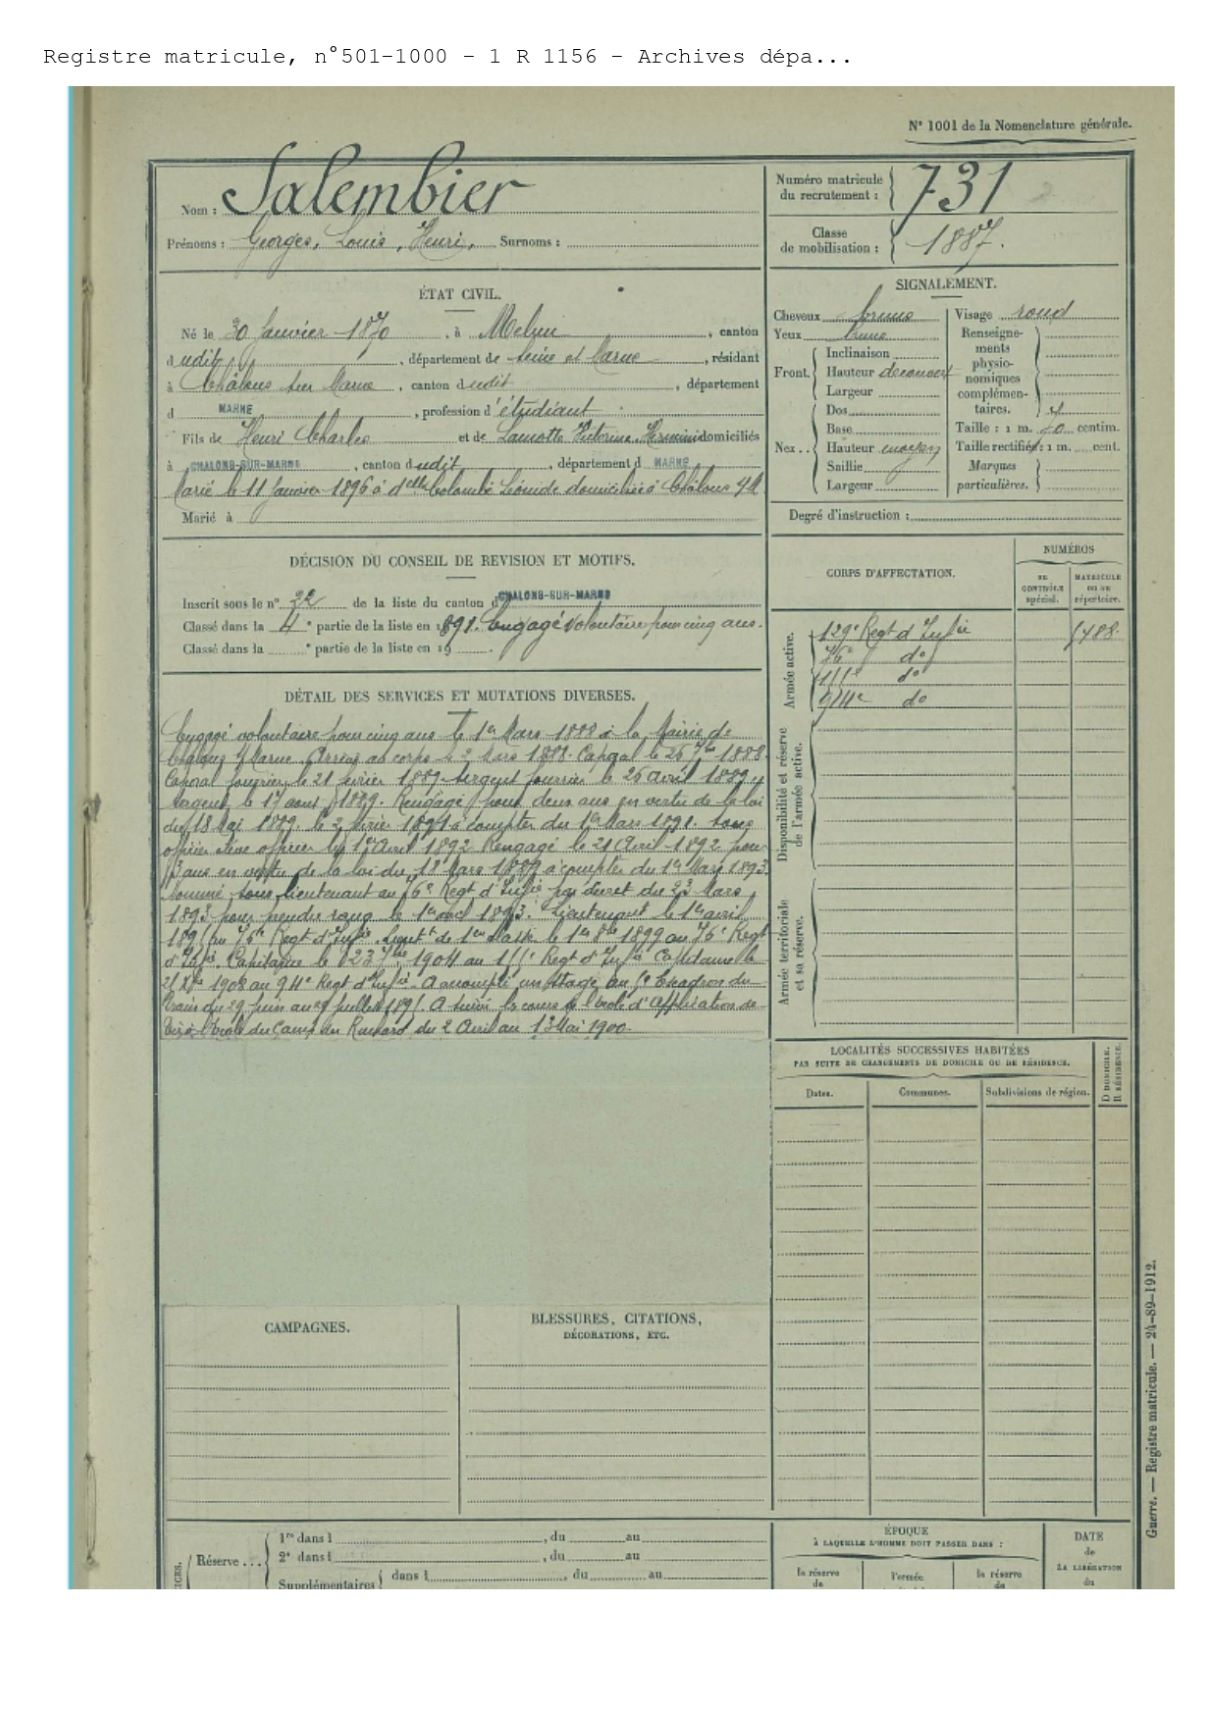 Registre matricule, n°501-1000 - 1 R 1156 - Archives dépa...
N° 1001 de la Nomenclature générale.
Nom : Salembier
Prénoms : Georges, Louis, Henri, Surnoms :
Numéro matricule du recrutement : 731
Classe de mobilisation : 1887.
ÉTAT CIVIL.
Né le 30 Janvier 1870, à Melun, canton
dudit, département de Seine et Marne, résidant
à Châlons sur Marne, canton dudit, département
d MARNE, profession d'étudiant
Fils de Henri Charles et de Lamotte Victorine domiciliés
à CHALONS-SUR-MARNE, canton dudit, département d MARNE
Marié le 11 Janvier 1896 à delle Colombé Léonide domiciliée à Châlons s/M
Marié à
SIGNALEMENT.
Cheveux bruns
Yeux bruns
Front. Inclinaison
Hauteur découvert
Largeur
Nez.. Dos
Base
Hauteur moyen
Saillie
Largeur
Visage rond
Renseignements physionomiques complémentaires.
Taille : 1 m. centim.
Taille rectifiée : 1 m. cent.
Marques particulières.
Degré d'instruction :
DÉCISION DU CONSEIL DE REVISION ET MOTIFS.
Inscrit sous le n° 22 de la liste du canton d CHALONS-SUR-MARNE
Classé dans la 4e partie de la liste en 1891. Engagé volontaire pour cinq ans.
Classé dans la e partie de la liste en 19
CORPS D'AFFECTATION.
NUMÉROS
DU CONTRÔLE spécial.
MATRICULE OU AU répertoire.
Armée active.
129e Regt d'Infie 5488.
76e do
111e do
94e do
Disponibilité et réserve de l'armée active.
Armée territoriale et sa réserve.
DÉTAIL DES SERVICES ET MUTATIONS DIVERSES.
Engagé volontaire pour cinq ans le 1er Mars 1888 à la Mairie de
Châlons s/Marne. Arrivé au corps le 2 Mars 1888. Caporal le 26 7bre 1888.
Caporal fourrier le 21 février 1889. Sergent fourrier le 26 avril 1889
Sergent le 17 aout 1889. Rengagé pour deux ans en vertu de la loi
du 18 Mai 1889. le 2 février 1891 à compter du 1er Mars 1891. Sous
officier élève officier le 1er Avril 1892 Rengagé le 21 Avril 1892 pour
3 ans en vertu de la loi du 18 Mars 1889 à compter du 1er Mars 1893
Nommé sous lieutenant au 76e Regt d'Infie par décret du 23 Mars
1893 pour prendre rang le 1er avril 1893. Lieutenant le 1er avril
1895 au 76e Regt d'Infie. Lieutt de 1ere classe le 1er 8bre 1899 au 76e Regt
d'Infie. Capitaine le 23 7bre 1904 au 111e Regt d'Infie Capitaine le
Xbre 1908 au 94e Regt d'Infie. A accompli un stage au 5e Escadron du
train du 29 juin au 29 juillet 1895. A suivi les cours de l'école d'application de
tir à l'école du Camp du Ruchard du 2 Avril au 13 Mai 1900.
LOCALITÉS SUCCESSIVES HABITÉES
PAR SUITE DE CHANGEMENTS DE DOMICILE OU DE RÉSIDENCE.
Dates. Communes. Subdivisions de région. D DOMICILE. R RÉSIDENCE.
CAMPAGNES.
BLESSURES, CITATIONS,
DÉCORATIONS, ETC.
Réserve ... 1re dans l , du au
2e dans l , du au
Supplémentaires dans l , du au
ÉPOQUE
À LAQUELLE L'HOMME DOIT PASSER DANS :
la réserve de
l'armée
la réserve de
DATE
de
LA LIBÉRATION
du
Guerre. — Registre matricule. — 24-89-1912.